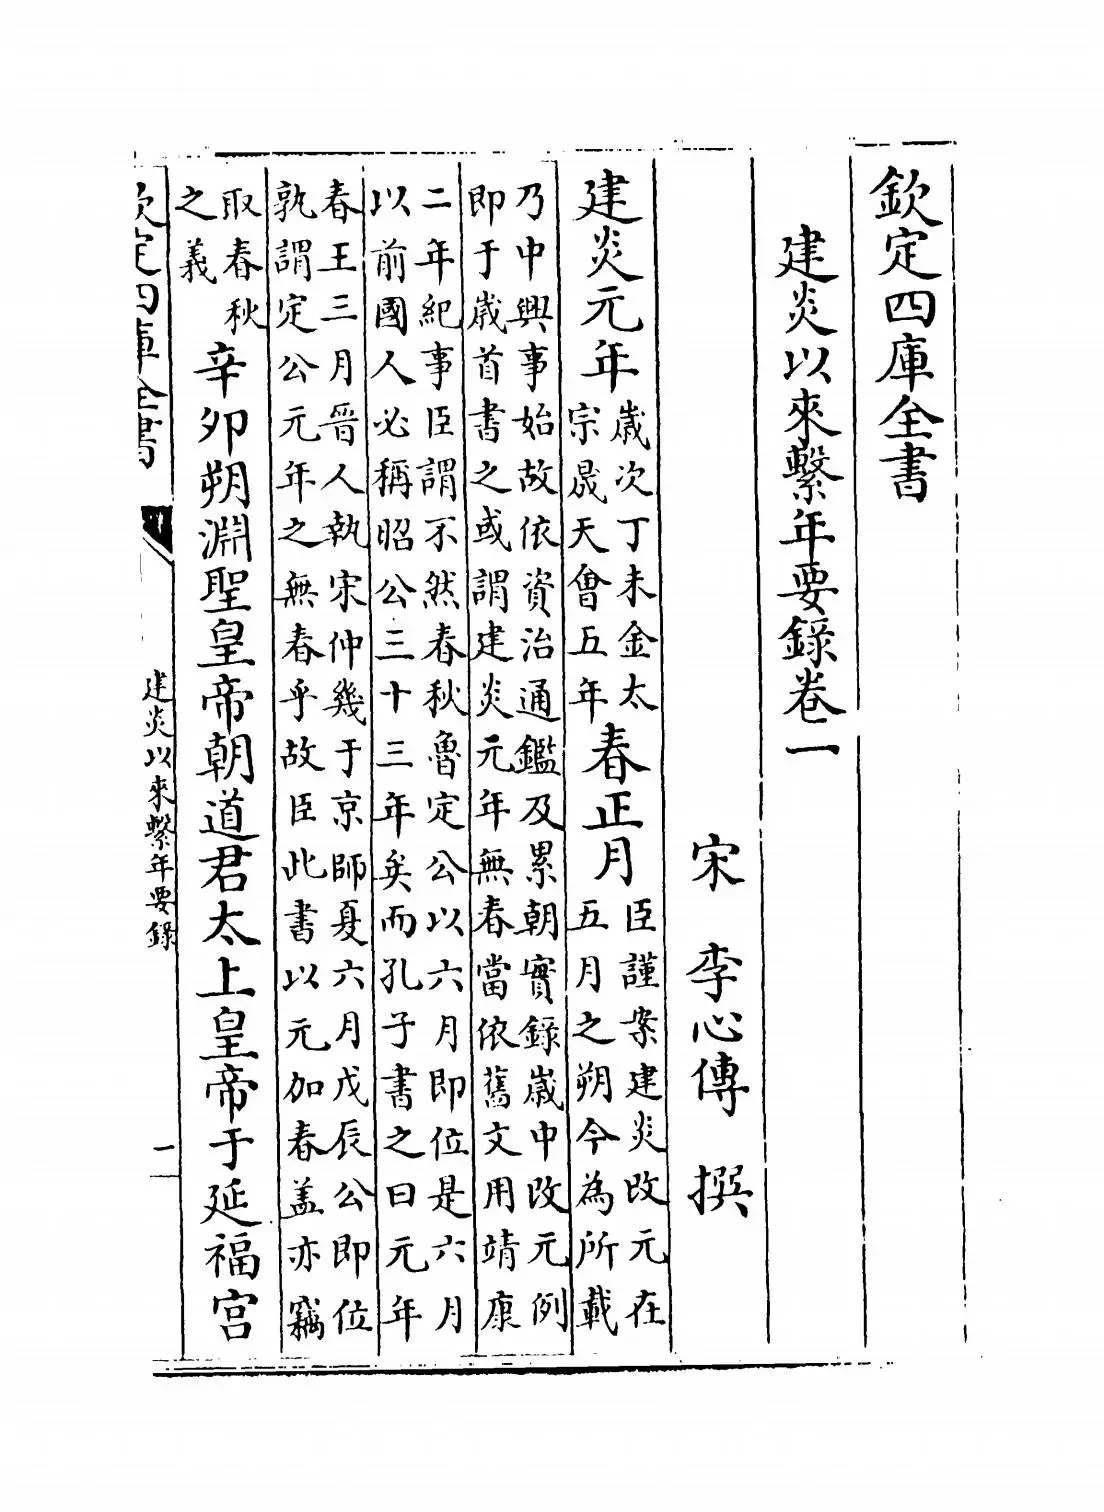 欽定四庫全書
建炎以來繫年要錄卷一
宋 李心傳 撰
建炎元年
歲次丁未金太
宗晟天會五年
春正月
臣謹案建炎改元在
五月之朔今為所載
乃中興事始故依資治通鑑及累朝實錄歲中改元例
即于歲首書之或謂建炎元年無春當依舊文用靖康
二年紀事臣謂不然春秋魯定公以六月即位是六月
以前國人必稱昭公三十三年矣而孔子書之曰元年
春王三月晉人執宋仲幾于京師夏六月戊辰公即位
孰謂定公元年之無春乎故臣此書以元加春盖亦竊
取春秋
之義
辛卯朔淵聖皇帝朝道君太上皇帝于延福宮
欽定四庫全書
建炎以來繫年要錄
一